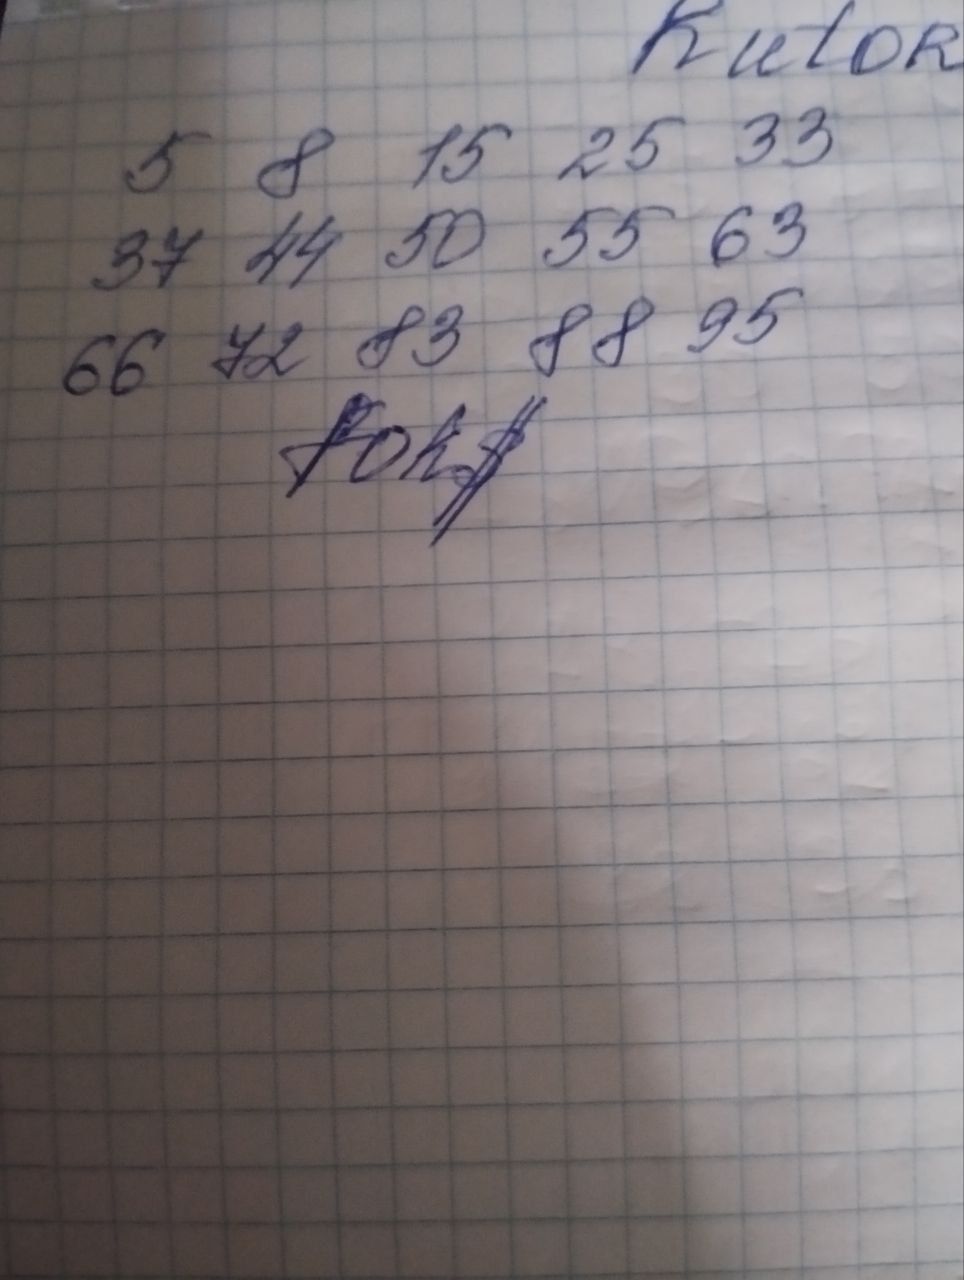 Kutor
5 8 15 25 33
37 44 50 55 63
66 72 83 88 95